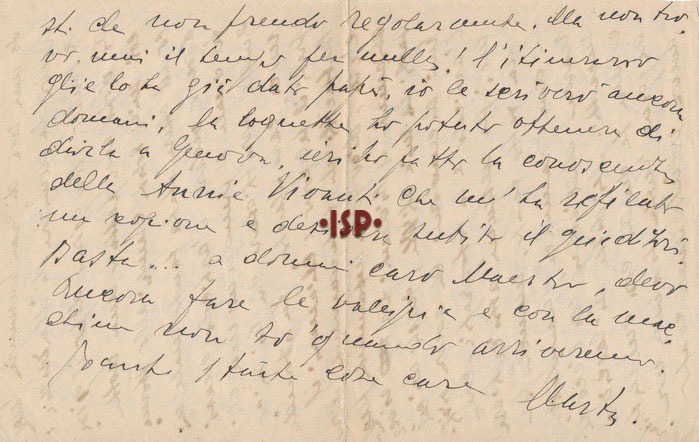 sti che non prendo regolarmente. Ma non tro
vo mai il tempo per nulla! l'itinerario
glielo ha già dato papà, io le scriverò ancora
domani, la ho potuto ottenere di
dirla a Genova, ieri ho fatto la conoscenza
della Annie Vivanti che m'ha rifilato
un copione e desidera subito il giudizio.
Basta... a domani caro Maestro, devo
ancora fare le valigie e con la mac
china non so quando arriveremo.
tante cose care Marta.
·ISP·